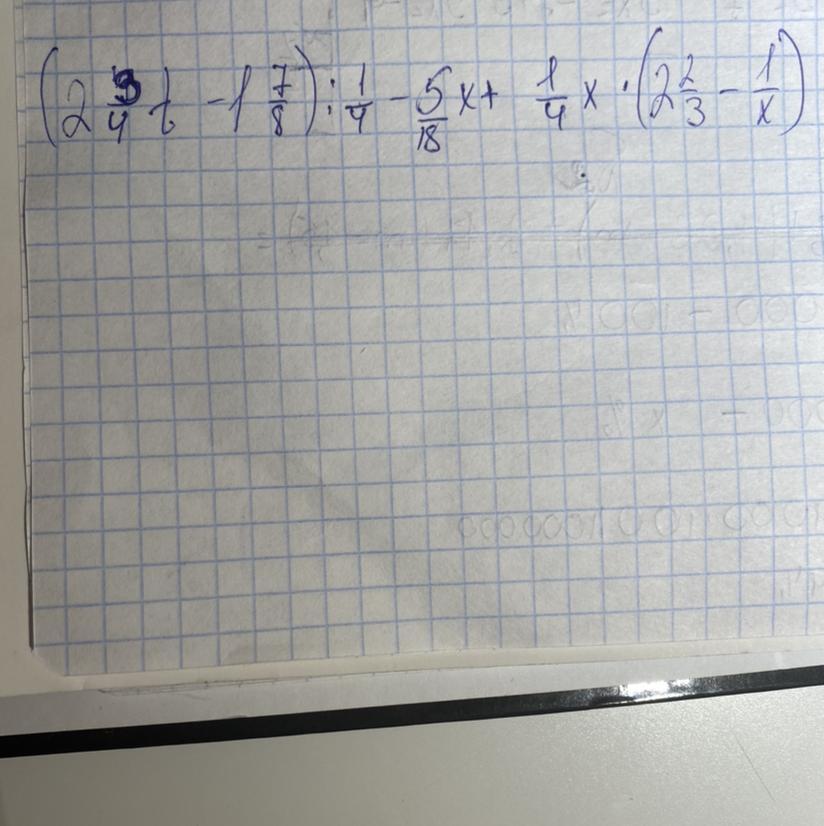 (2 3/4 t - 1 7/8) : 1/4 - 5/18 x + 1/4 x · (2 2/3 - 1/x)